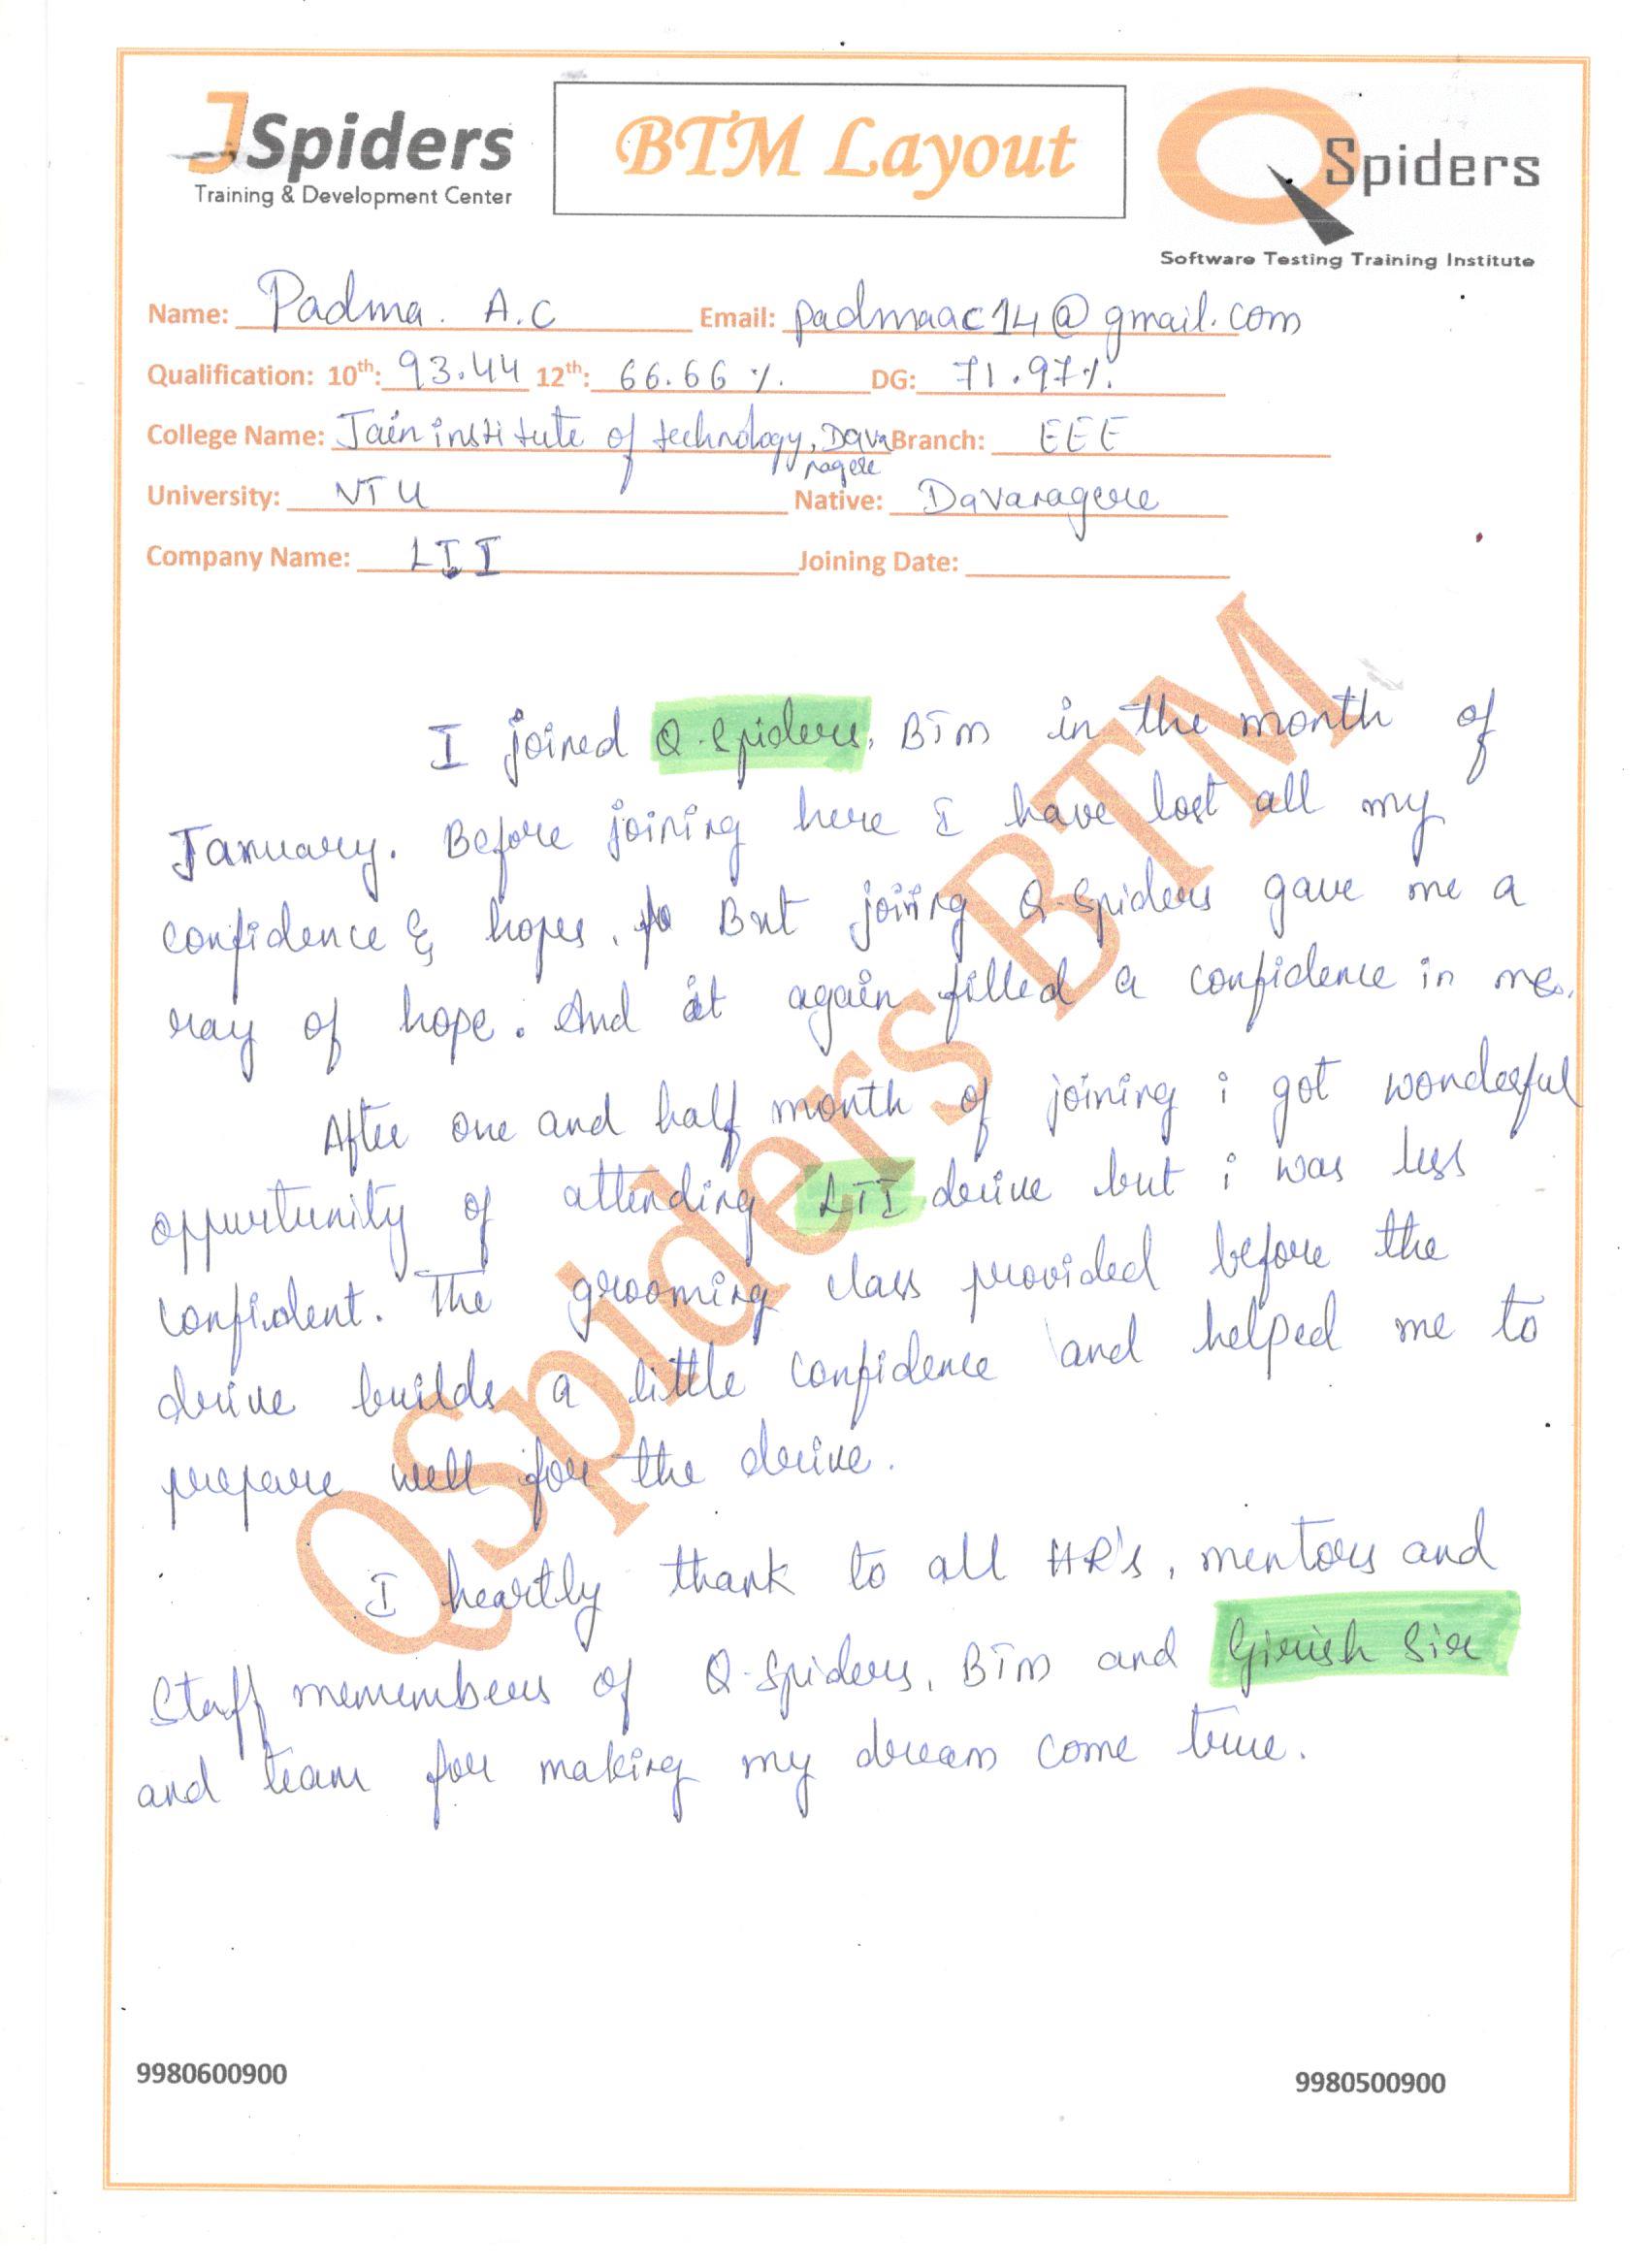 JSpiders
Training & Development Center
BTM Layout
QSpiders
Software Testing Training Institute
Name: Padma. A.C Email: padmaac14@gmail.com
Qualification: 10th: 93.44 12th: 66.66 %. DG: 71.97%.
College Name: Jain institute of technology, Dava Branch: EEE
nagere
University: VTU Native: Davanagere
Company Name: LTI Joining Date:
I joined Q-Spiders, BTM in the month of
January. Before joining here I have lost all my
confidence & hopes. But joining Q-Spiders gave me a
ray of hope. And it again filled a confidence in me.
After one and half month of joining i got wonderful
opportunity of attending LTI drive but i was less
confident. The grooming class provided before the
drive builds a little confidence and helped me to
prepare well for the drive.
I heartly thank to all HR's, mentors and
Staff memembers of Q-Spiders, BTM and Girish Sir
and team for making my dream come true.
QSpiders BTM
9980600900
9980500900